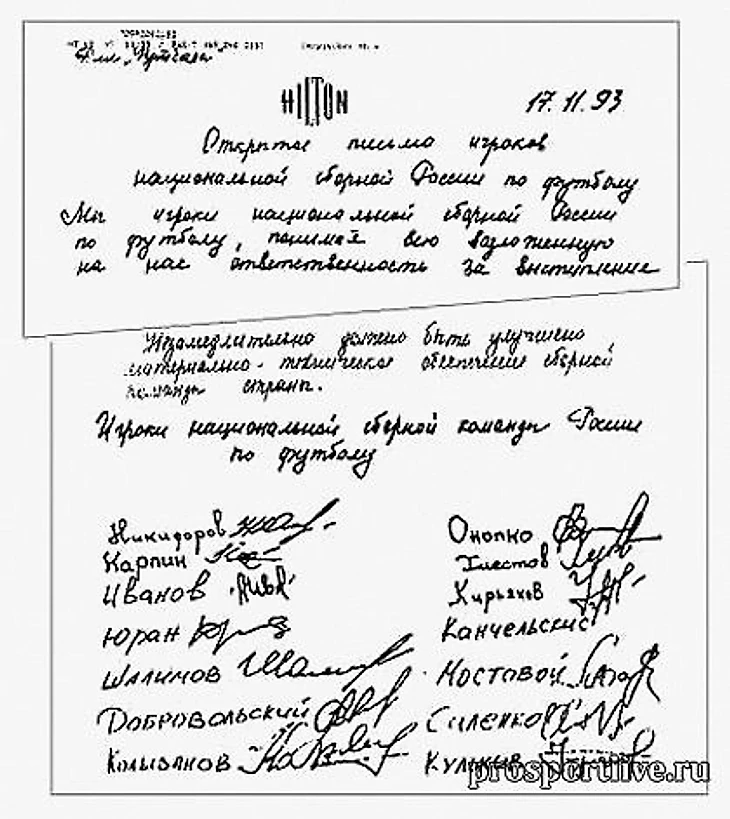 HILTON
17.11.93
Открытое письмо игроков
национальной сборной России по футболу
Мы игроки национальной сборной России
по футболу, понимая всю возложенную
на нас ответственность за выступление
Незамедлительно должно быть улучшено
материально-техническое обеспечение сборной
команды страны.
Игроки национальной сборной команды России
по футболу
Никифоров Онопко
Карпин Хлестов
Иванов Кирьяков
Юран Канчельскис
Шалимов Мостовой
Добровольский
Колыванов Кульков
prosportlive.ru